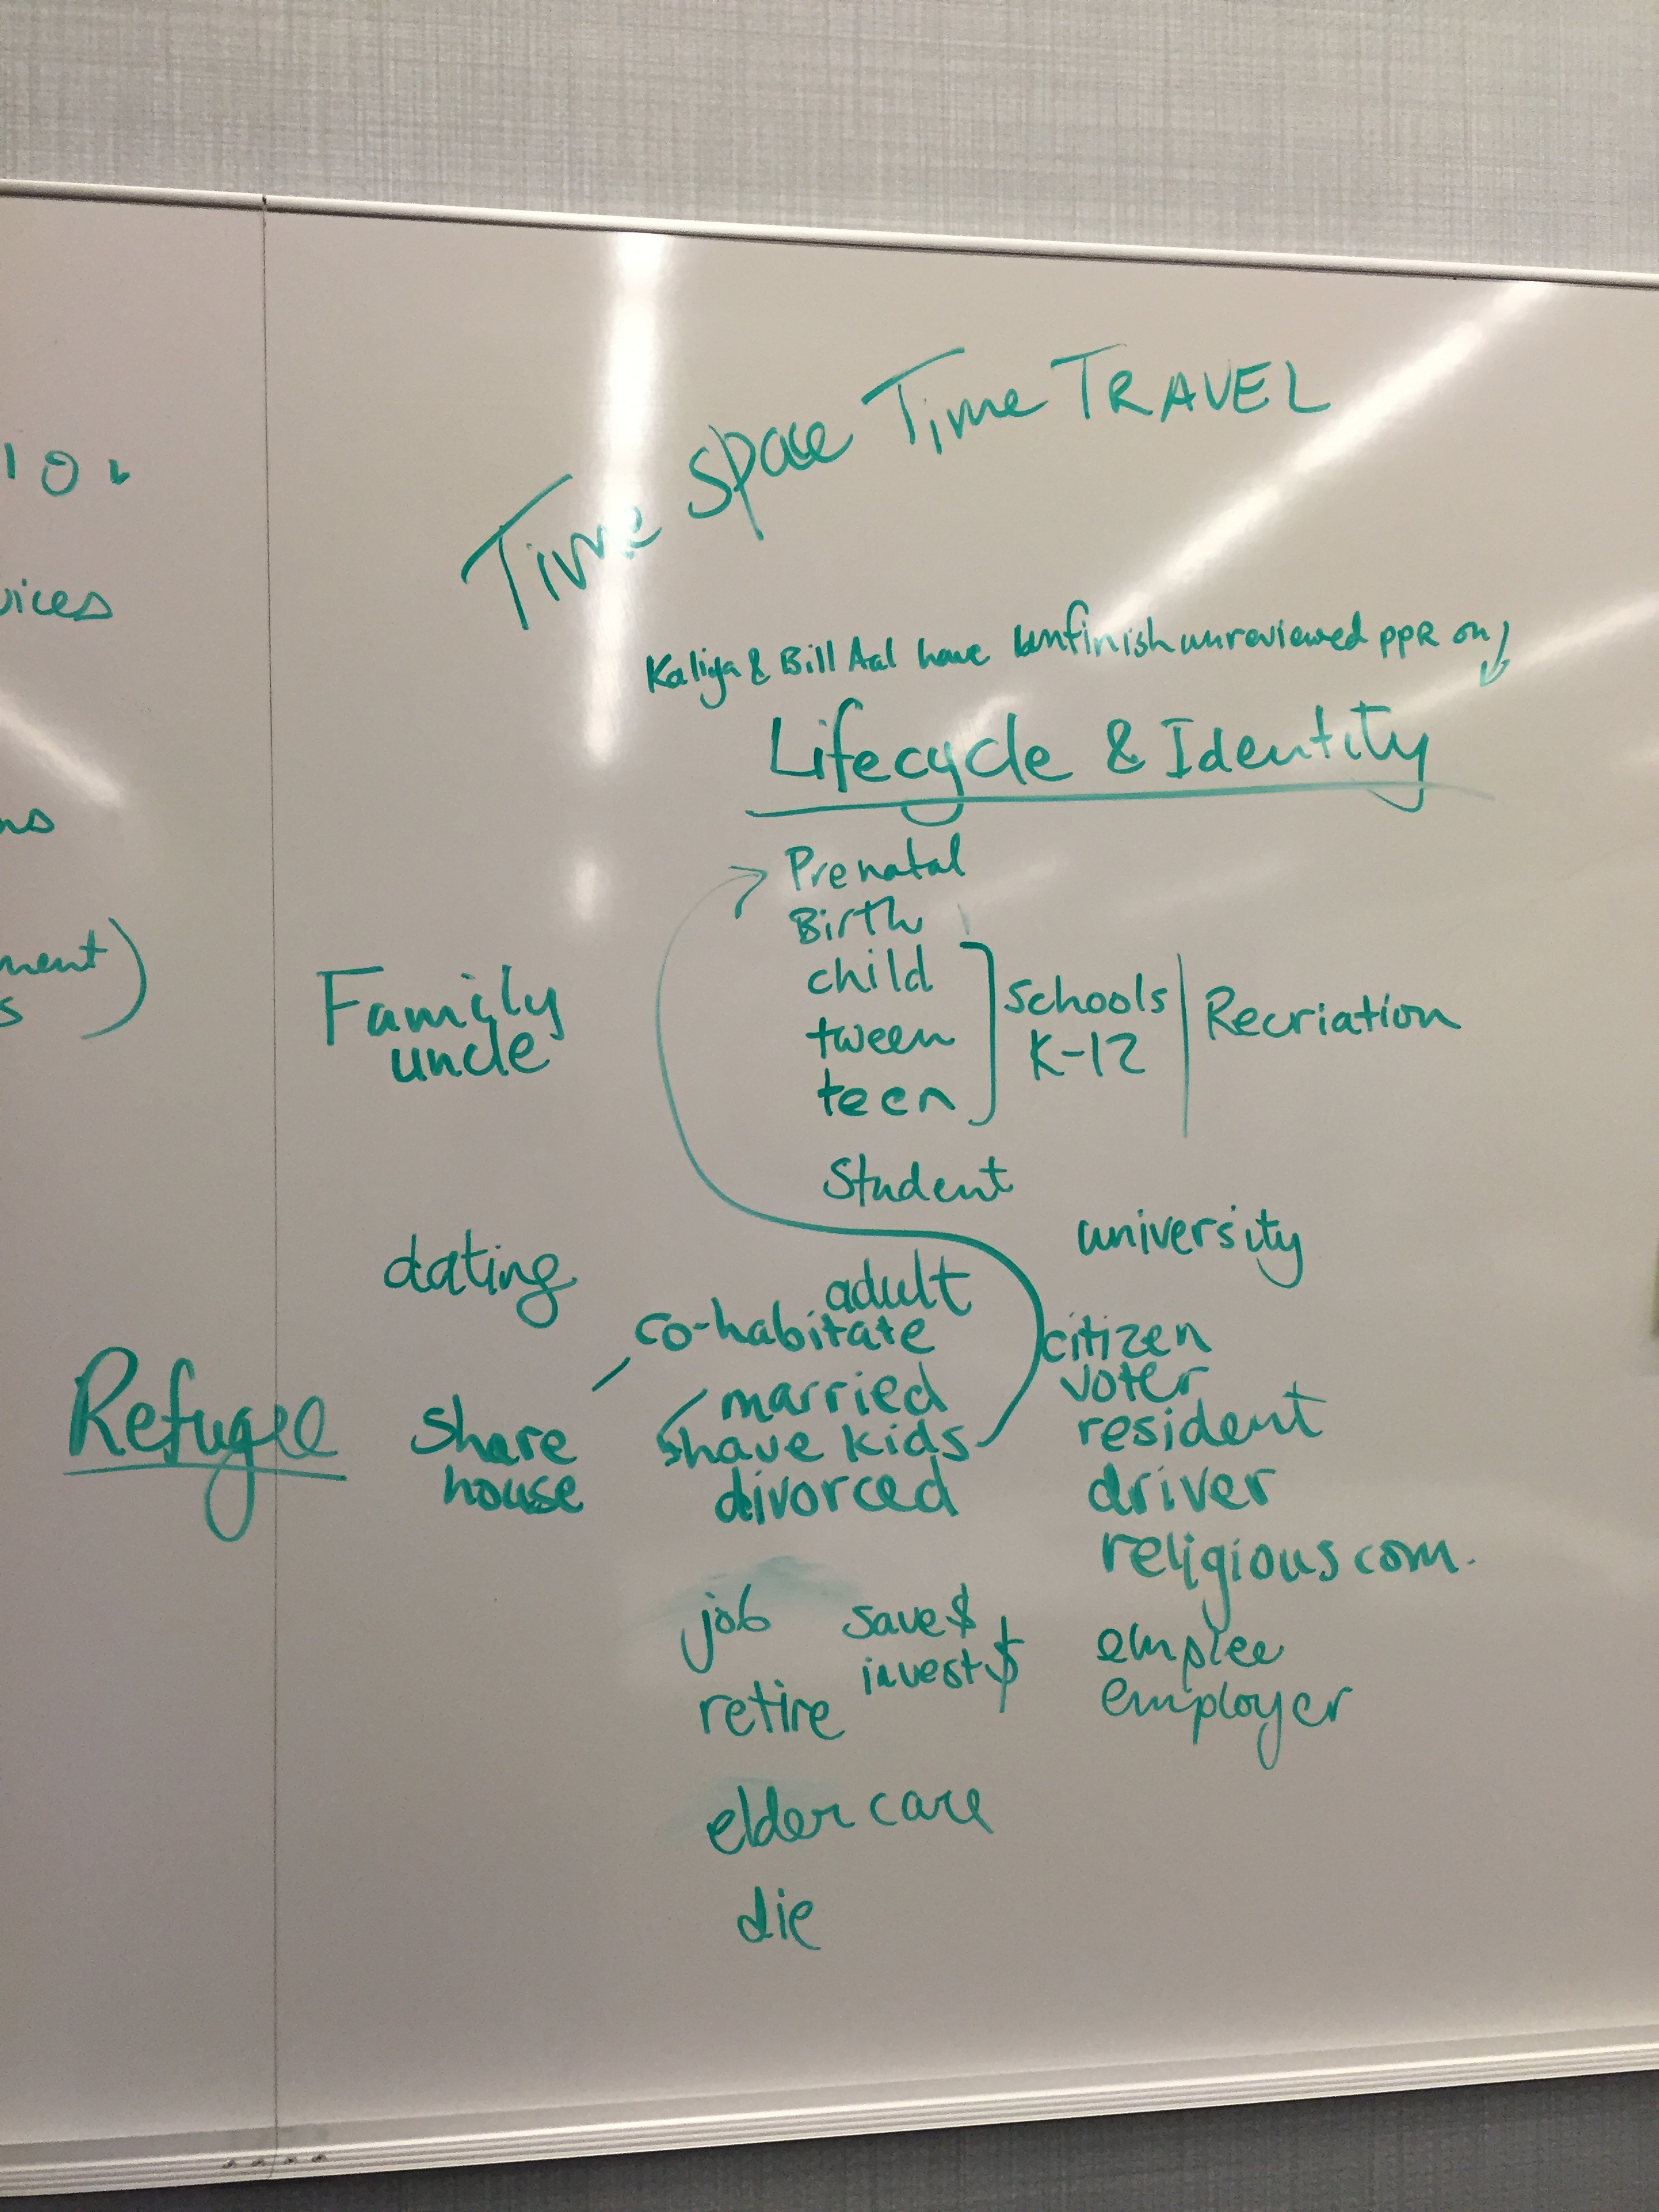 Time Space Time TRAVEL
Kaliya & Bill Aal have unfinish unreviewed ppR on
Lifecycle & Identity
Prenatal
Birth
child
tween
teen
Schools
K-12
Recriation
Family
uncle
Student
university
dating
adult
co-habitate
married
have kids
divorced
citizen
voter
resident
driver
religious com.
Refugee
Share
house
job
save $
invest $
retire
emplee
employer
elder care
die